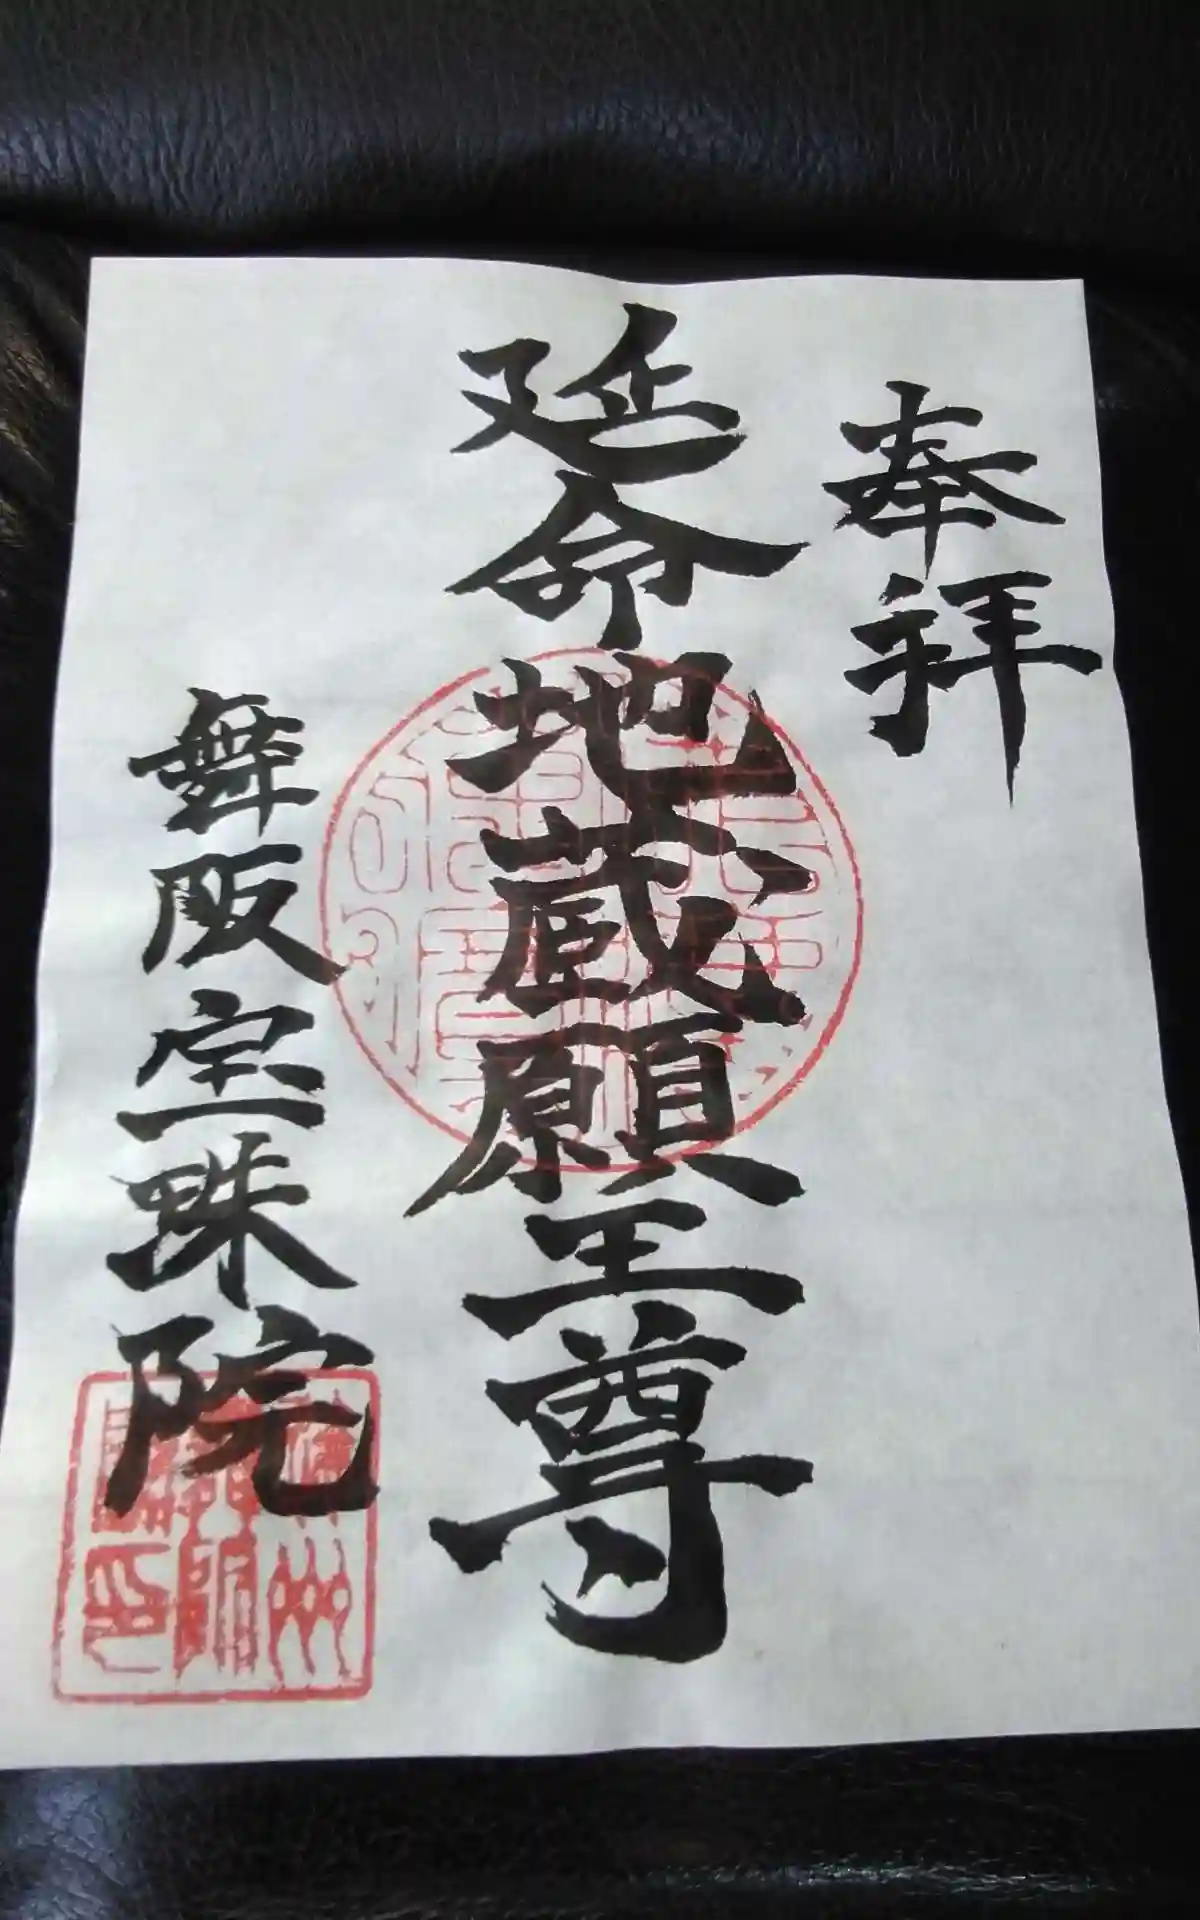 奉拝
延命地蔵願王尊
舞阪宝珠院